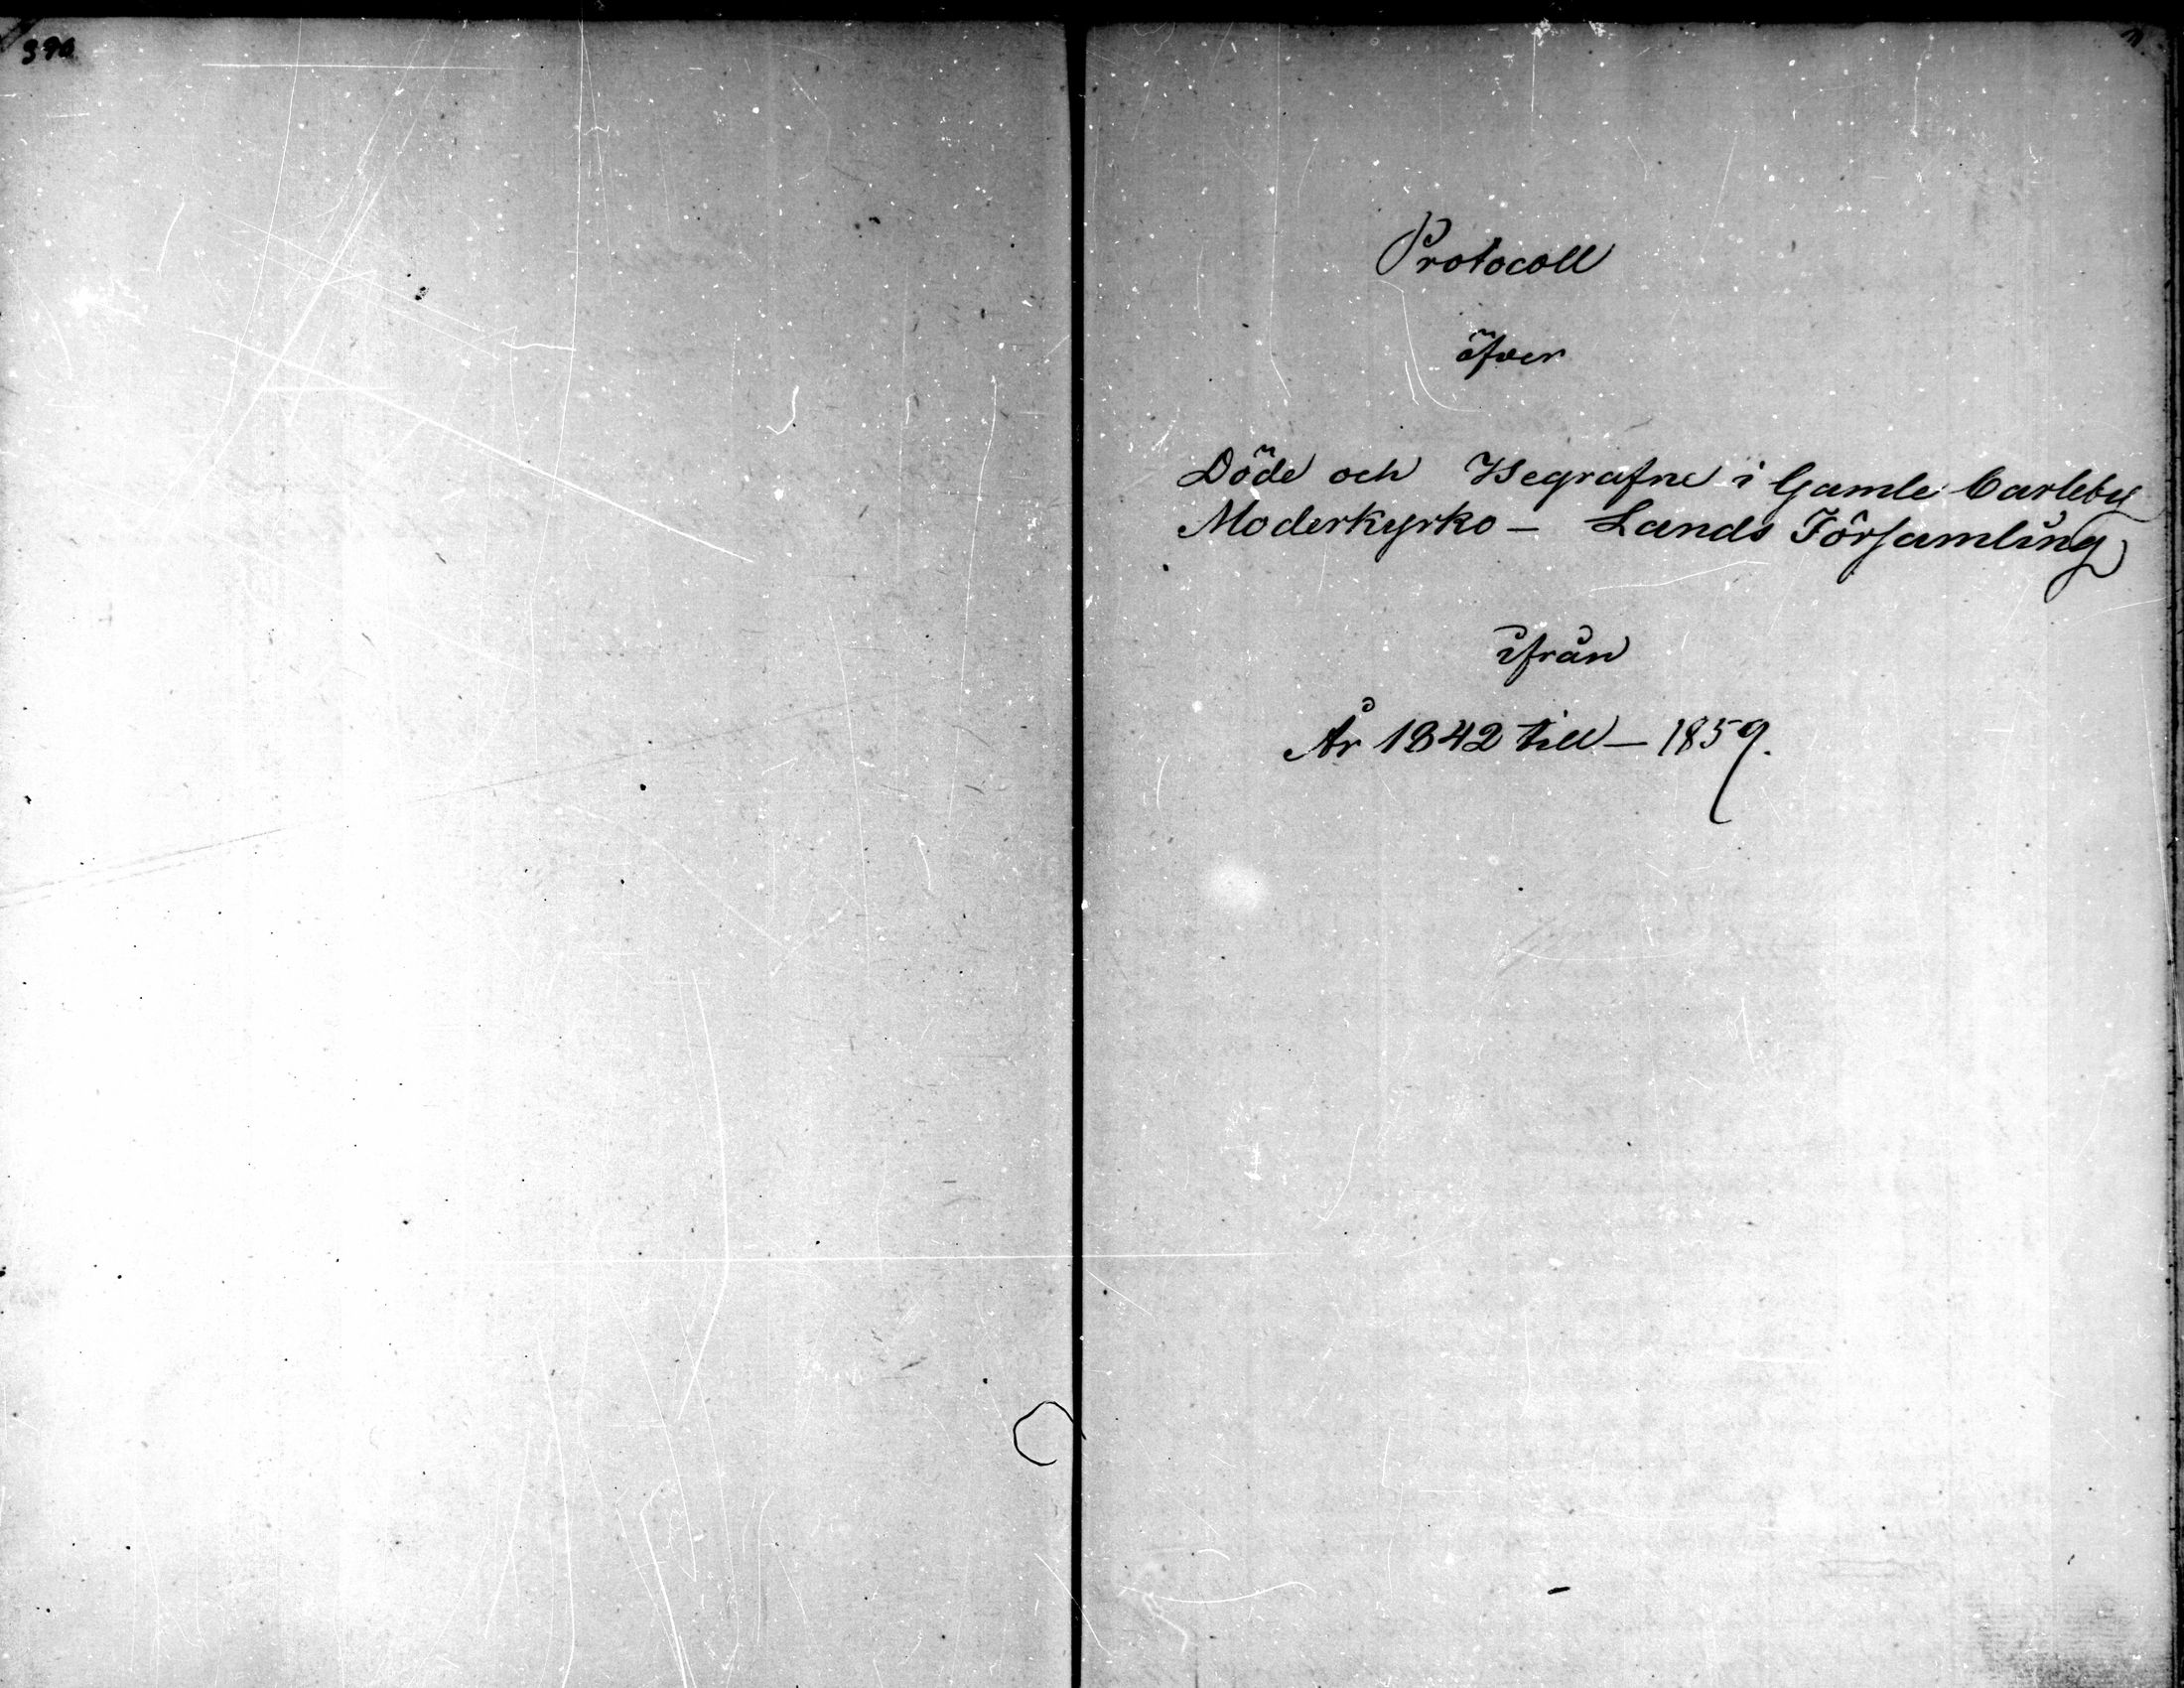 390
Protocoll
öfver
Döde och Begrafne i Gamle Carleby
Moderkyrko - Lands Församling
ifrån
År 1842 till - 1859.